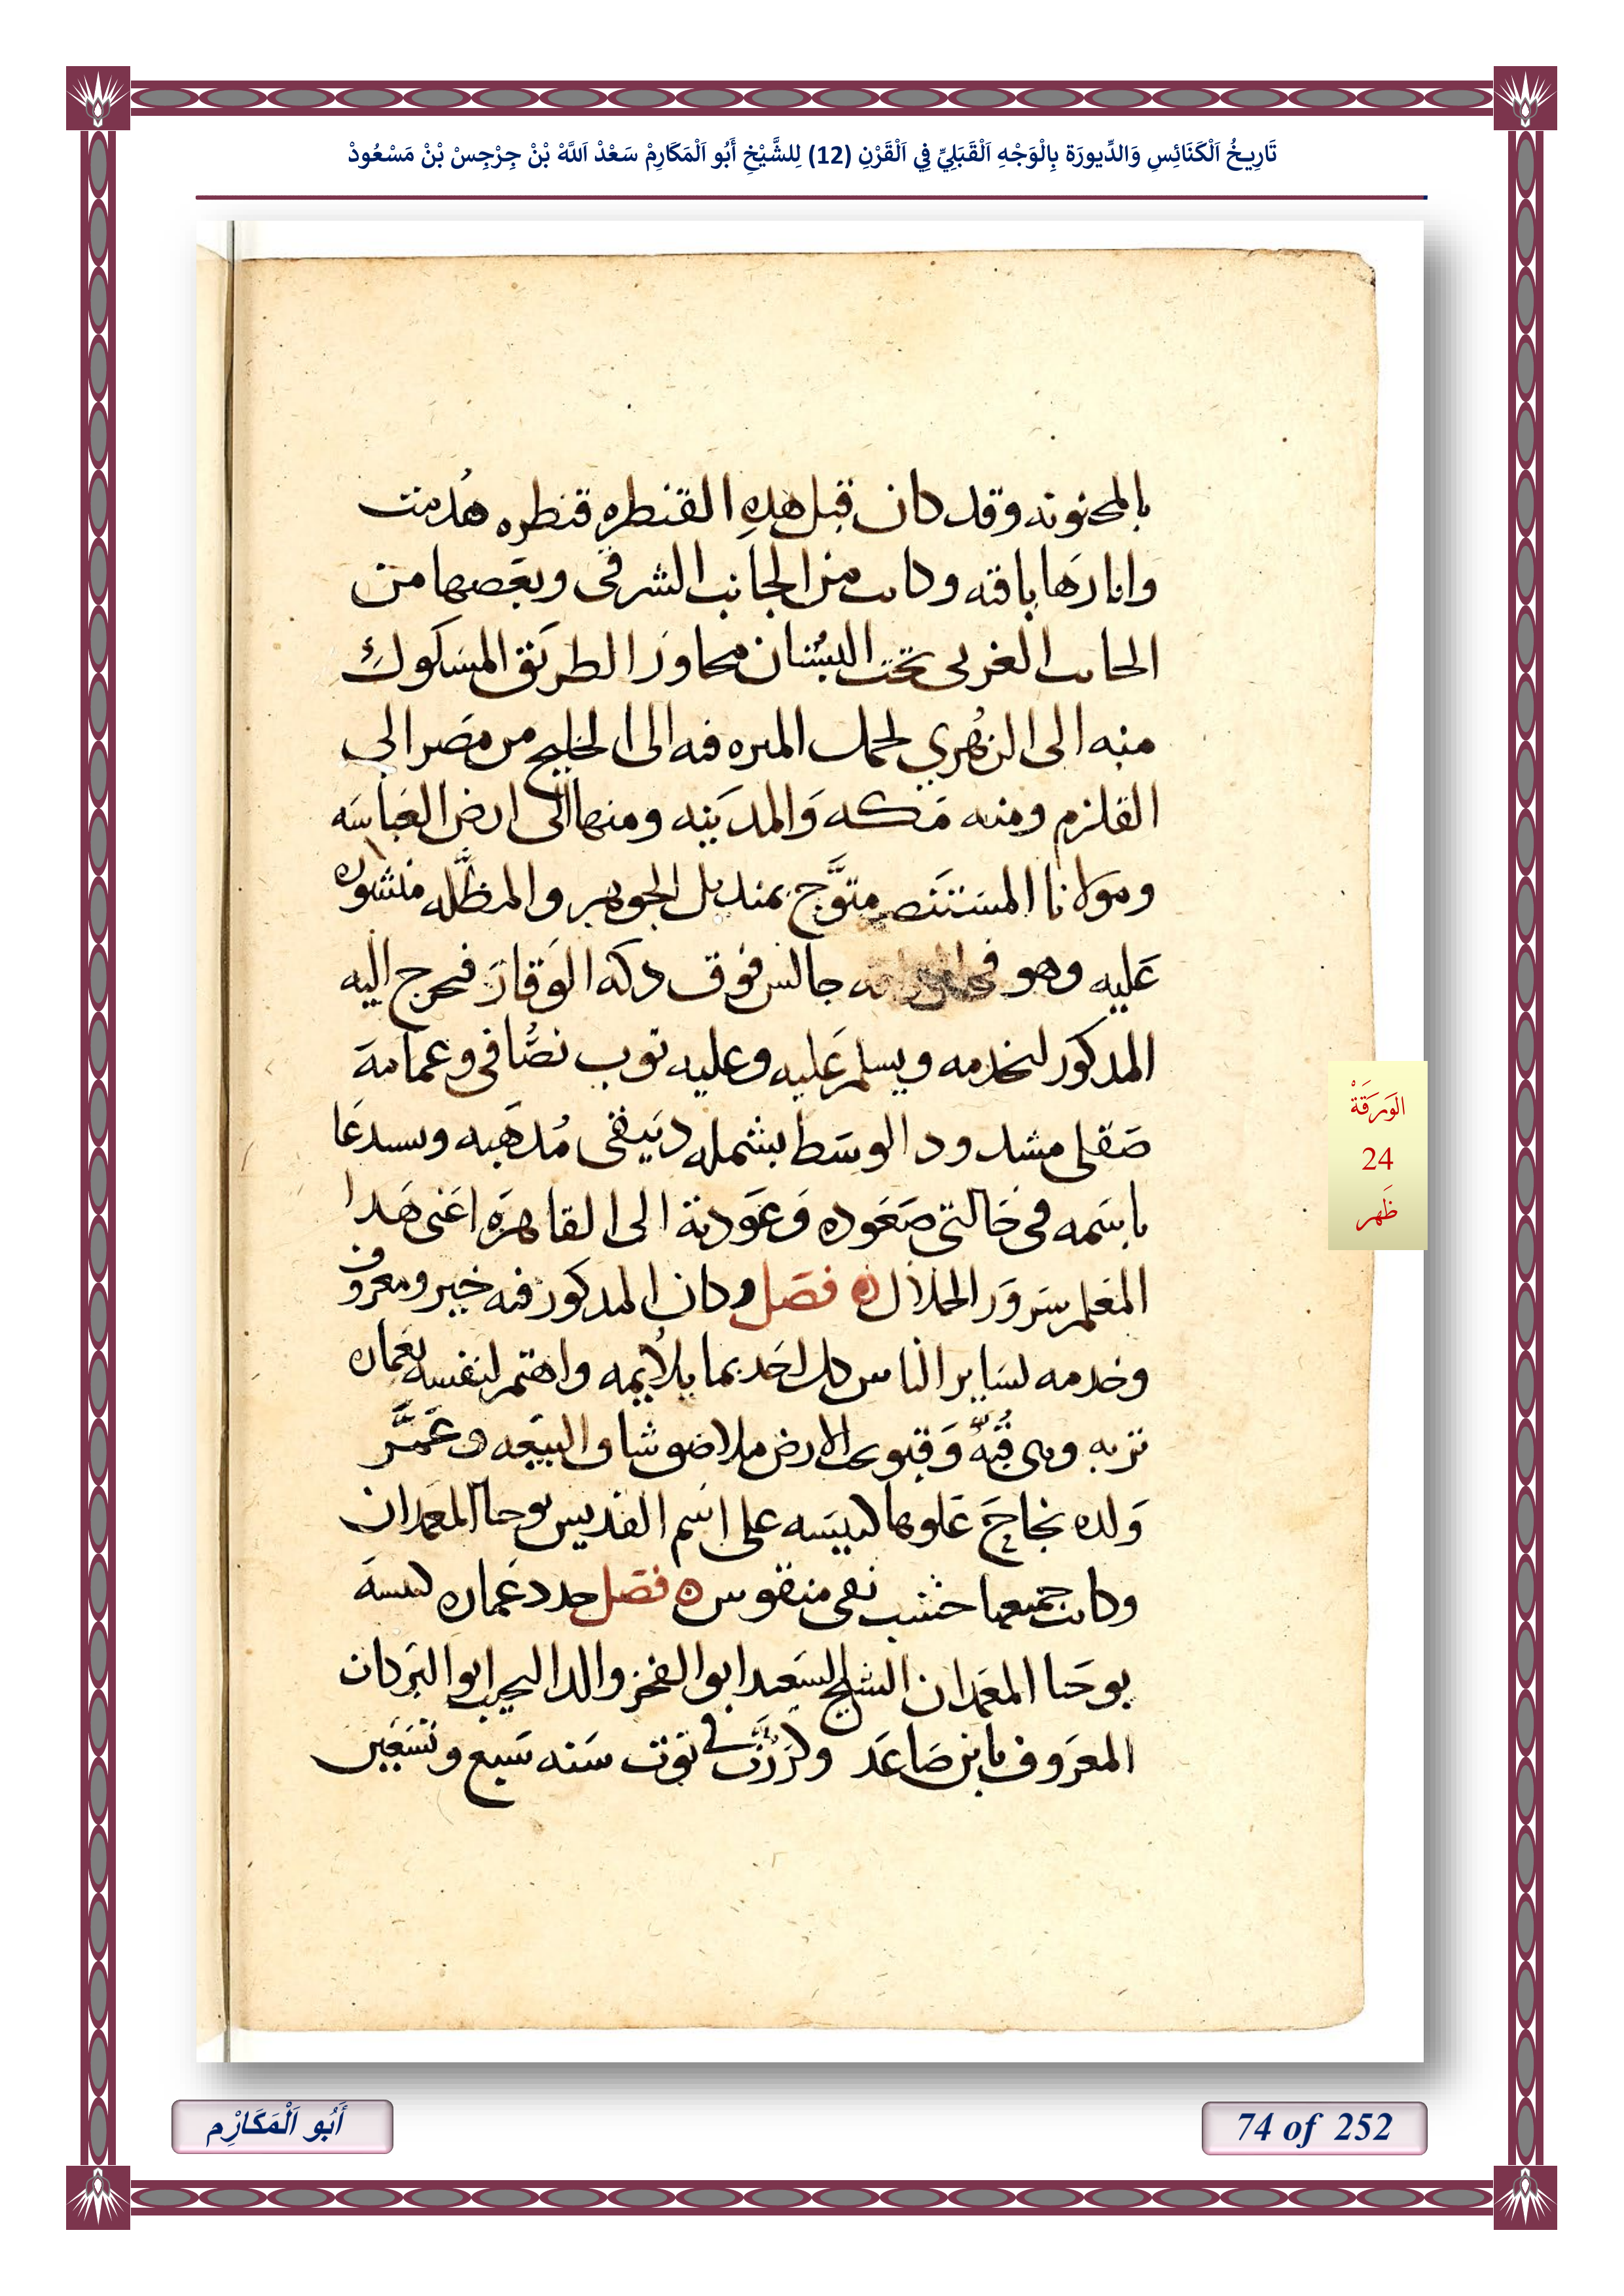 تَارِيخُ اَلْكَنَائِسِ وَالدِّيورَة بِالْوَجْهِ اَلْقَبَلِيِّ فِي اَلْقَرْنِ (12) لِلشَّيْخِ أَبُو اَلْمَكَارِمْ سَعْدْ اَللَّهْ بْنْ جِرْجِسْ بْنْ مَسْعُودْ
بالمجنونه وقد كان قبل هده القنطره قنطره هُدمت
واثارَها باقيه وكانت من الجانب الشرقى وبعَضها من
الجانب الغربى تحت البسُتان مجاورَ الطريَق المسَكوك
منه الى الزهُري لحمل الميره فيه الى الخليج من مصَر الي
القلزم ومنه مَكه وَالمديَنه ومنها الى ارض العَباسَه
ومولانا المسَتنَصر متوَّج بمنديل الجوهر والمظَّله منشوره
عَليه وهو جالس فوق دكه الوَقارَ فخرج اليه
المدكورَ ليخدمه ويسلم عَليه وعليه توب نصُّافى وعمامهَ
صَقلى مشدود الوسَط بشمله دبَيقى مُدهَبه ويستدعَا
باسَمه في حَالتى صَعَوده وَعوَدته الى القاهرَه اعَنى هَدا
المعَلم سَروَر الجلال ه فصَل وكان المدكورَ فيه خير ومعروف
وخدمه لسَاير الناس كل احَد بما يلاُيمه واهتم لنفسه بعَماره
تربه وهى قبُهّ وَقبو على الارض ملاصق شاق البيعَه وعَمَّر
وَلده نجاحَ عَلوها كنيسَه على اسَم القديس يوحنا المعَمدان
وكانت جميعها خشب نقى منقوس ه فصَل جدد عَماره كنيسهَ
يوحَنا المعَمدان الشيخ السَعيد ابو الفخر والد النجيب ابو البرَكات
المعرَوف بابن صَاعَد وكرَزَت في توت سَنه سَبع وتسَعَين
اَلْوَرَقَةْ
24
ظَهر
أَبُو اَلْمَكَارْمِ
74 of 252